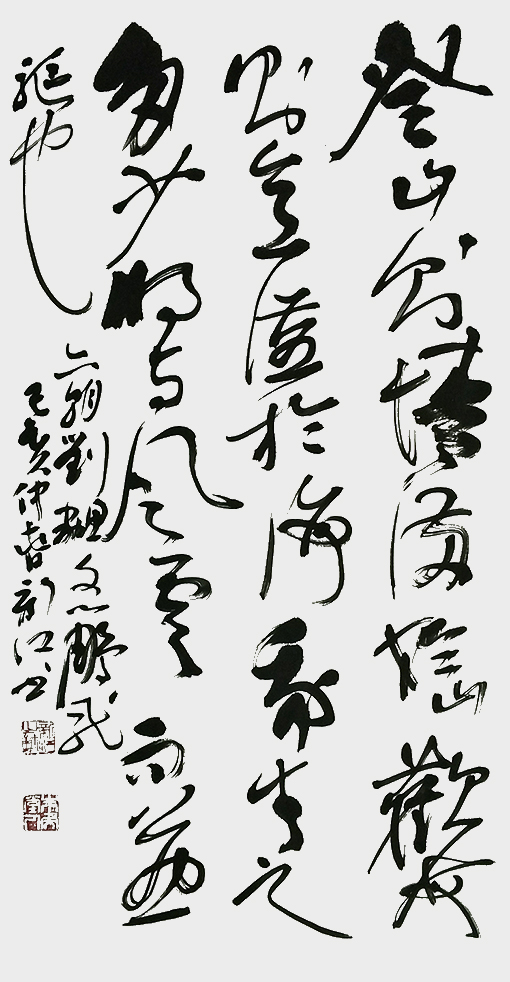 登山則情滿於山觀海
則意溢於海我才之
多少將與風雲而並
驅也
六朝劉勰文心雕龍
己亥仲春新江书